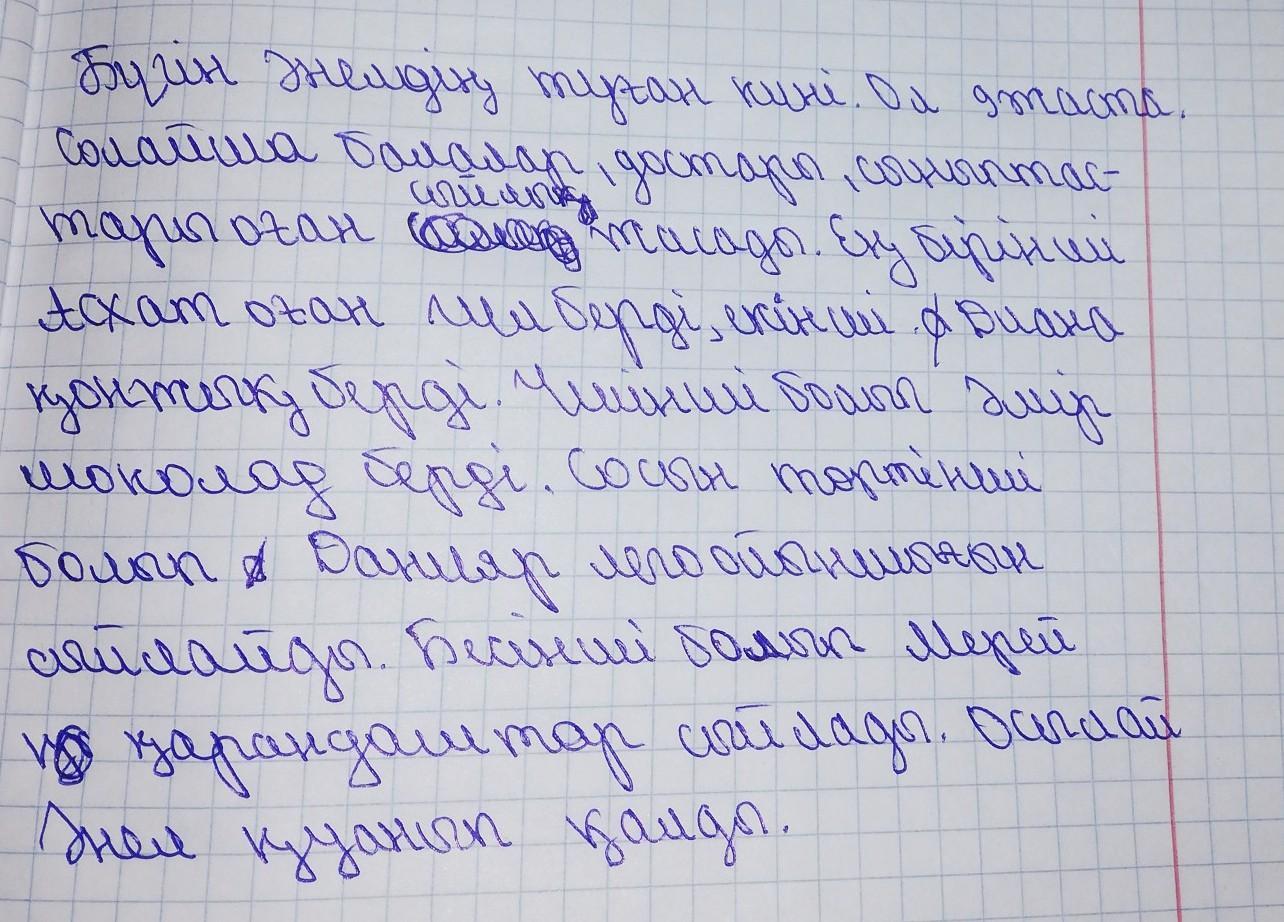 Бүгін Әнелдің туған күні. Ол 9 жаста.
Солайша балалар, достары, сыныптас-
тары оған сыйлық жасады. Ең бірінші
Асхат оған гүл берді, екінші Диана
қонжық берді. Үшінші болып Әмір
шоколад берді. Сосын төртінші
болып Данияр лего ойыншығын
сыйлайды. Бесінші болып Мерей
қарандаштар сыйлады. Осылай
Әнел қуанып қалды.